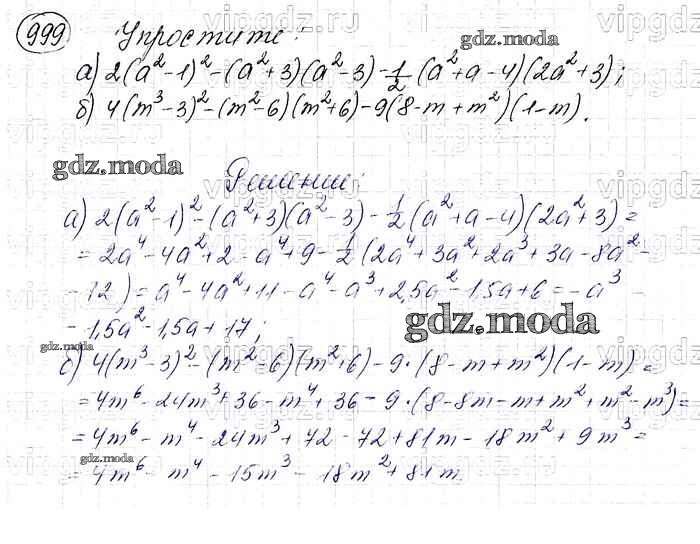 999 Упростите:
gdz.moda
а) 2(a²-1)²-(a²+3)(a²-3)-1/2(a²+a-4)(2a²+3);
б) 4(m³-3)²-(m²-6)(m²+6)-9(8-m+m²)(1-m).
gdz.moda
Решение:
а) 2(a²-1)²-(a²+3)(a²-3)-1/2(a²+a-4)(2a²+3)=
=2a⁴-4a²+2-a⁴+9-1/2(2a⁴+3a²+2a³+3a-8a²-
-12)=a⁴-4a²+11-a⁴-a³+2,5a²-1,5a+6=-a³-
-1,5a²-1,5a+17;
gdz.moda
gdz.moda
б) 4(m³-3)²-(m²-6)(m²+6)-9·(8-m+m²)(1-m)=
=4m⁶-24m³+36-m⁴+36-9·(8-8m-m+m²+m²-m³)=
=4m⁶-m⁴-24m³+72-72+81m-18m²+9m³=
gdz.moda
=4m⁶-m⁴-15m³-18m²+81m
vipgdz.ru